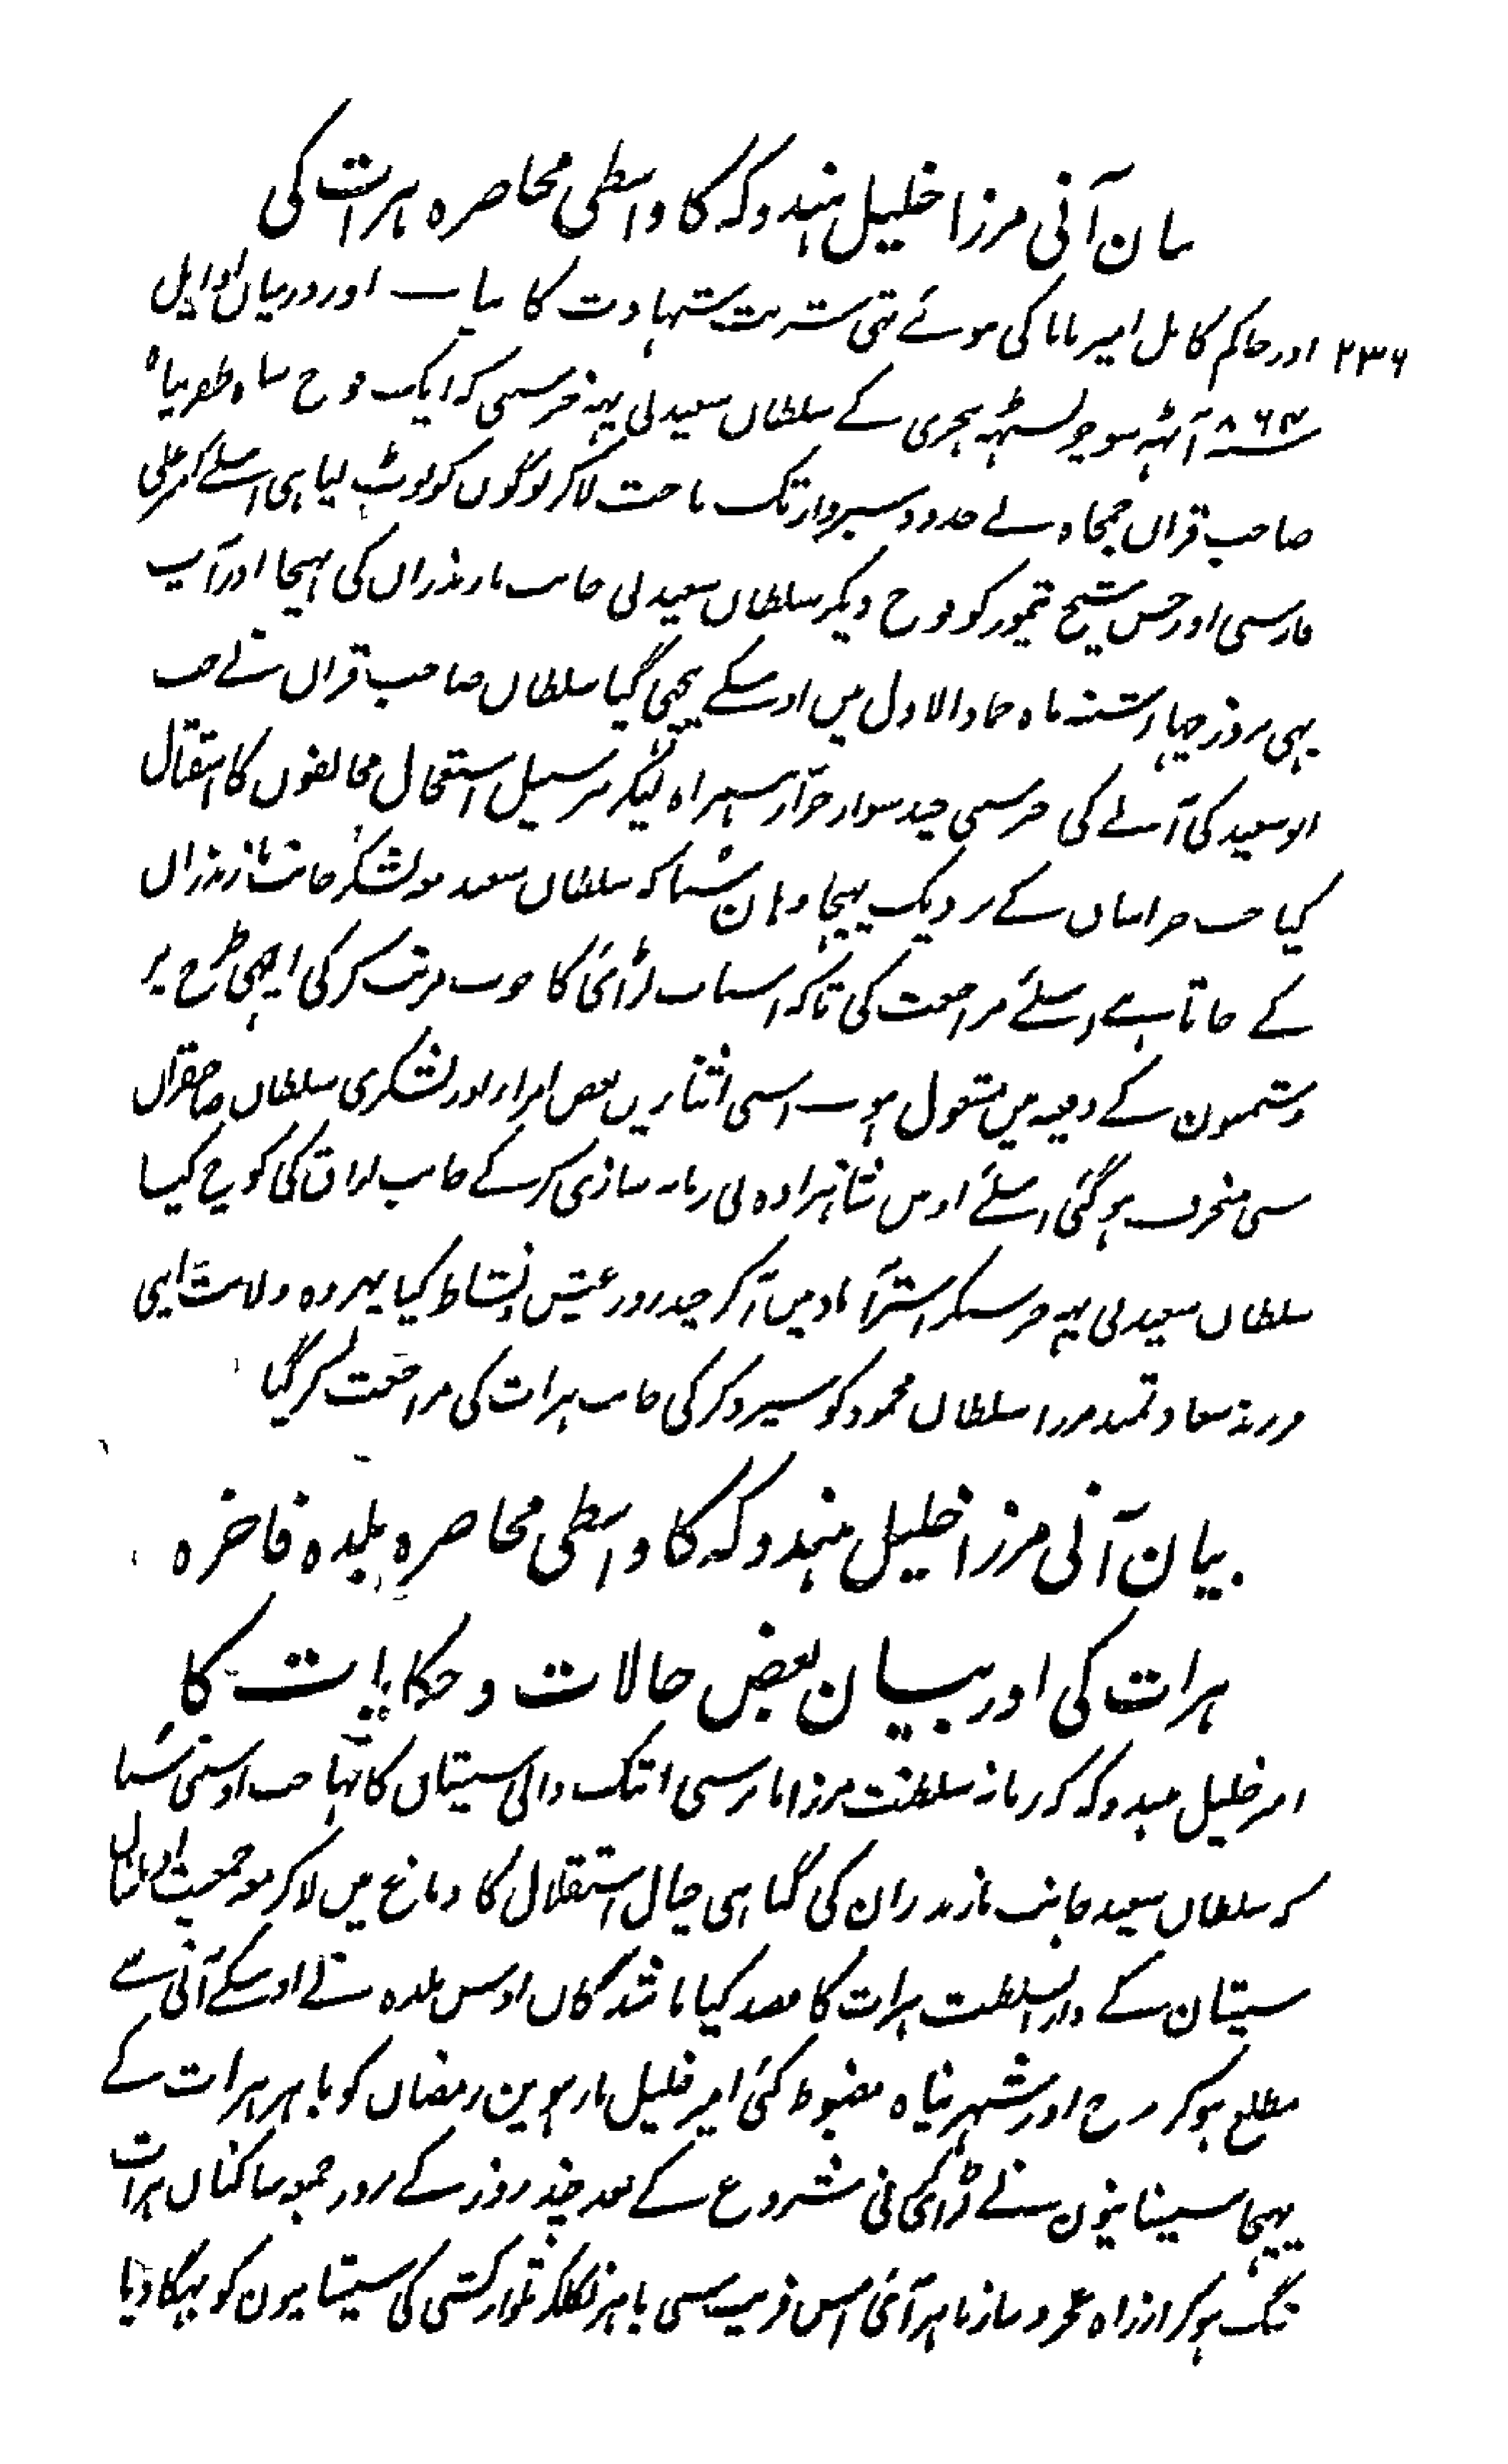 بیان آنی مرزا خلیل ہندوکہ کا واسطی محاصرہ ہرات کی
۲۳۶ اور حاکم کامل امیر بابا کی ہوئے تہی شربت شہادت کا پیا اور درمیان اوایل
سنہ ۸۶۴ آٹہہ سو چونسٹہہ ہجری کے سلطان سعید نی یہہ خبر سنی کہ ایک فوج سپاہ ظفر پناہ
صاحب قران جمجاہ نے حدود سبزوار تک تاخت لاکر لوگوں کو لوٹ لیا ہی اسلئے امیر علی
فارسی اور حسن شیخ تیمور کو فوج دیکر سلطان سعید نی جانب مازندران کی بہیجا اور آپ
بہی بروز چہارشنبہ ماہ جماد الاول میں اوسکے پیچہی گیا سلطان صاحب قران نے جب
ابو سعید کی آنے کی خبر سنی چند سوار جرار ہمراہ لیکر بر سبیل استعجال مخالفوں کا استقبال
کیا جب خراسان کے نزدیک پہنچا وہان سنا کہ سلطان سعید مو لشکر جانب مازندران
کے جاتا ہے اسلئے مراجعت کی تاکہ اسباب لڑائی کا خوب مرتب کر کی اچہی طرح پر
دشمنون کے دفعیہ میں مشغول ہو اسی اثنا میں بعض امراء اور لشکری سلطان صاحبقران
سی منحرف ہوگئی اسلئے اوس شاہزادہ نی زمانہ سازی کر کے جانب اراق کی کوچ کیا
سلطان سعید نی یہہ خبر سنکر استرآباد میں آکر چند روز عیش و نشاط کیا پہر وہ ولایت اپنی
فرزند سعادتمند مرزا سلطان محمود کو سپرد کر کی جانب ہرات کی مراجعت کر گیا
بیان آنی مرزا خلیل ہندوکہ کا واسطی محاصرہ بلدہ فاخرہ
ہرات کی اور بیان بعض حالات و حکایات کا
امیر خلیل ہندوکہ کہ زمانہ سلطنت مرزا بابر سی ابتک والی سیستان کا تہا جب اوسنی سنا
کہ سلطان سعید جانب مازندران کی گیا ہی خیال استقلال کا دماغ میں لاکر مو جمعیت
سیستان کے دار السلطنت ہرات کا قصد کیا باشندگان اوس بلدہ نے اوسکے آنی سے
مطلع ہوکر برج اور شہر پناہ مضبوط کئی امیر خلیل بارہوین رمضان کو باہر ہرات کے
پہنچا سیستانیون نے لڑائی شروع کے بعد چند روز کے روز جمعہ ساکنان ہرات
تنگ ہوکر از راہ باہر آئی اس فریب سی باہر نکلکر تلوار کشی کی سیستانیون کو بہگا دیا